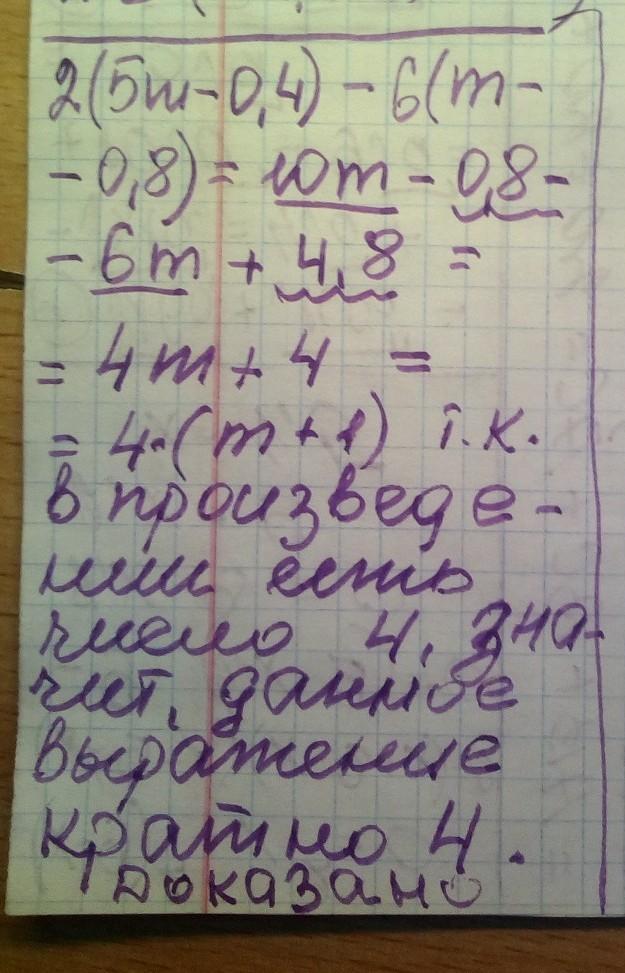 2(5m-0,4) - 6(m-
- 0,8) = 10m - 0,8 -
- 6m + 4,8 =
= 4m + 4 =
= 4·(m+1) т.к.
в произведе-
нии есть
число 4, зна-
чит, данное
выражение
кратно 4.
Доказано